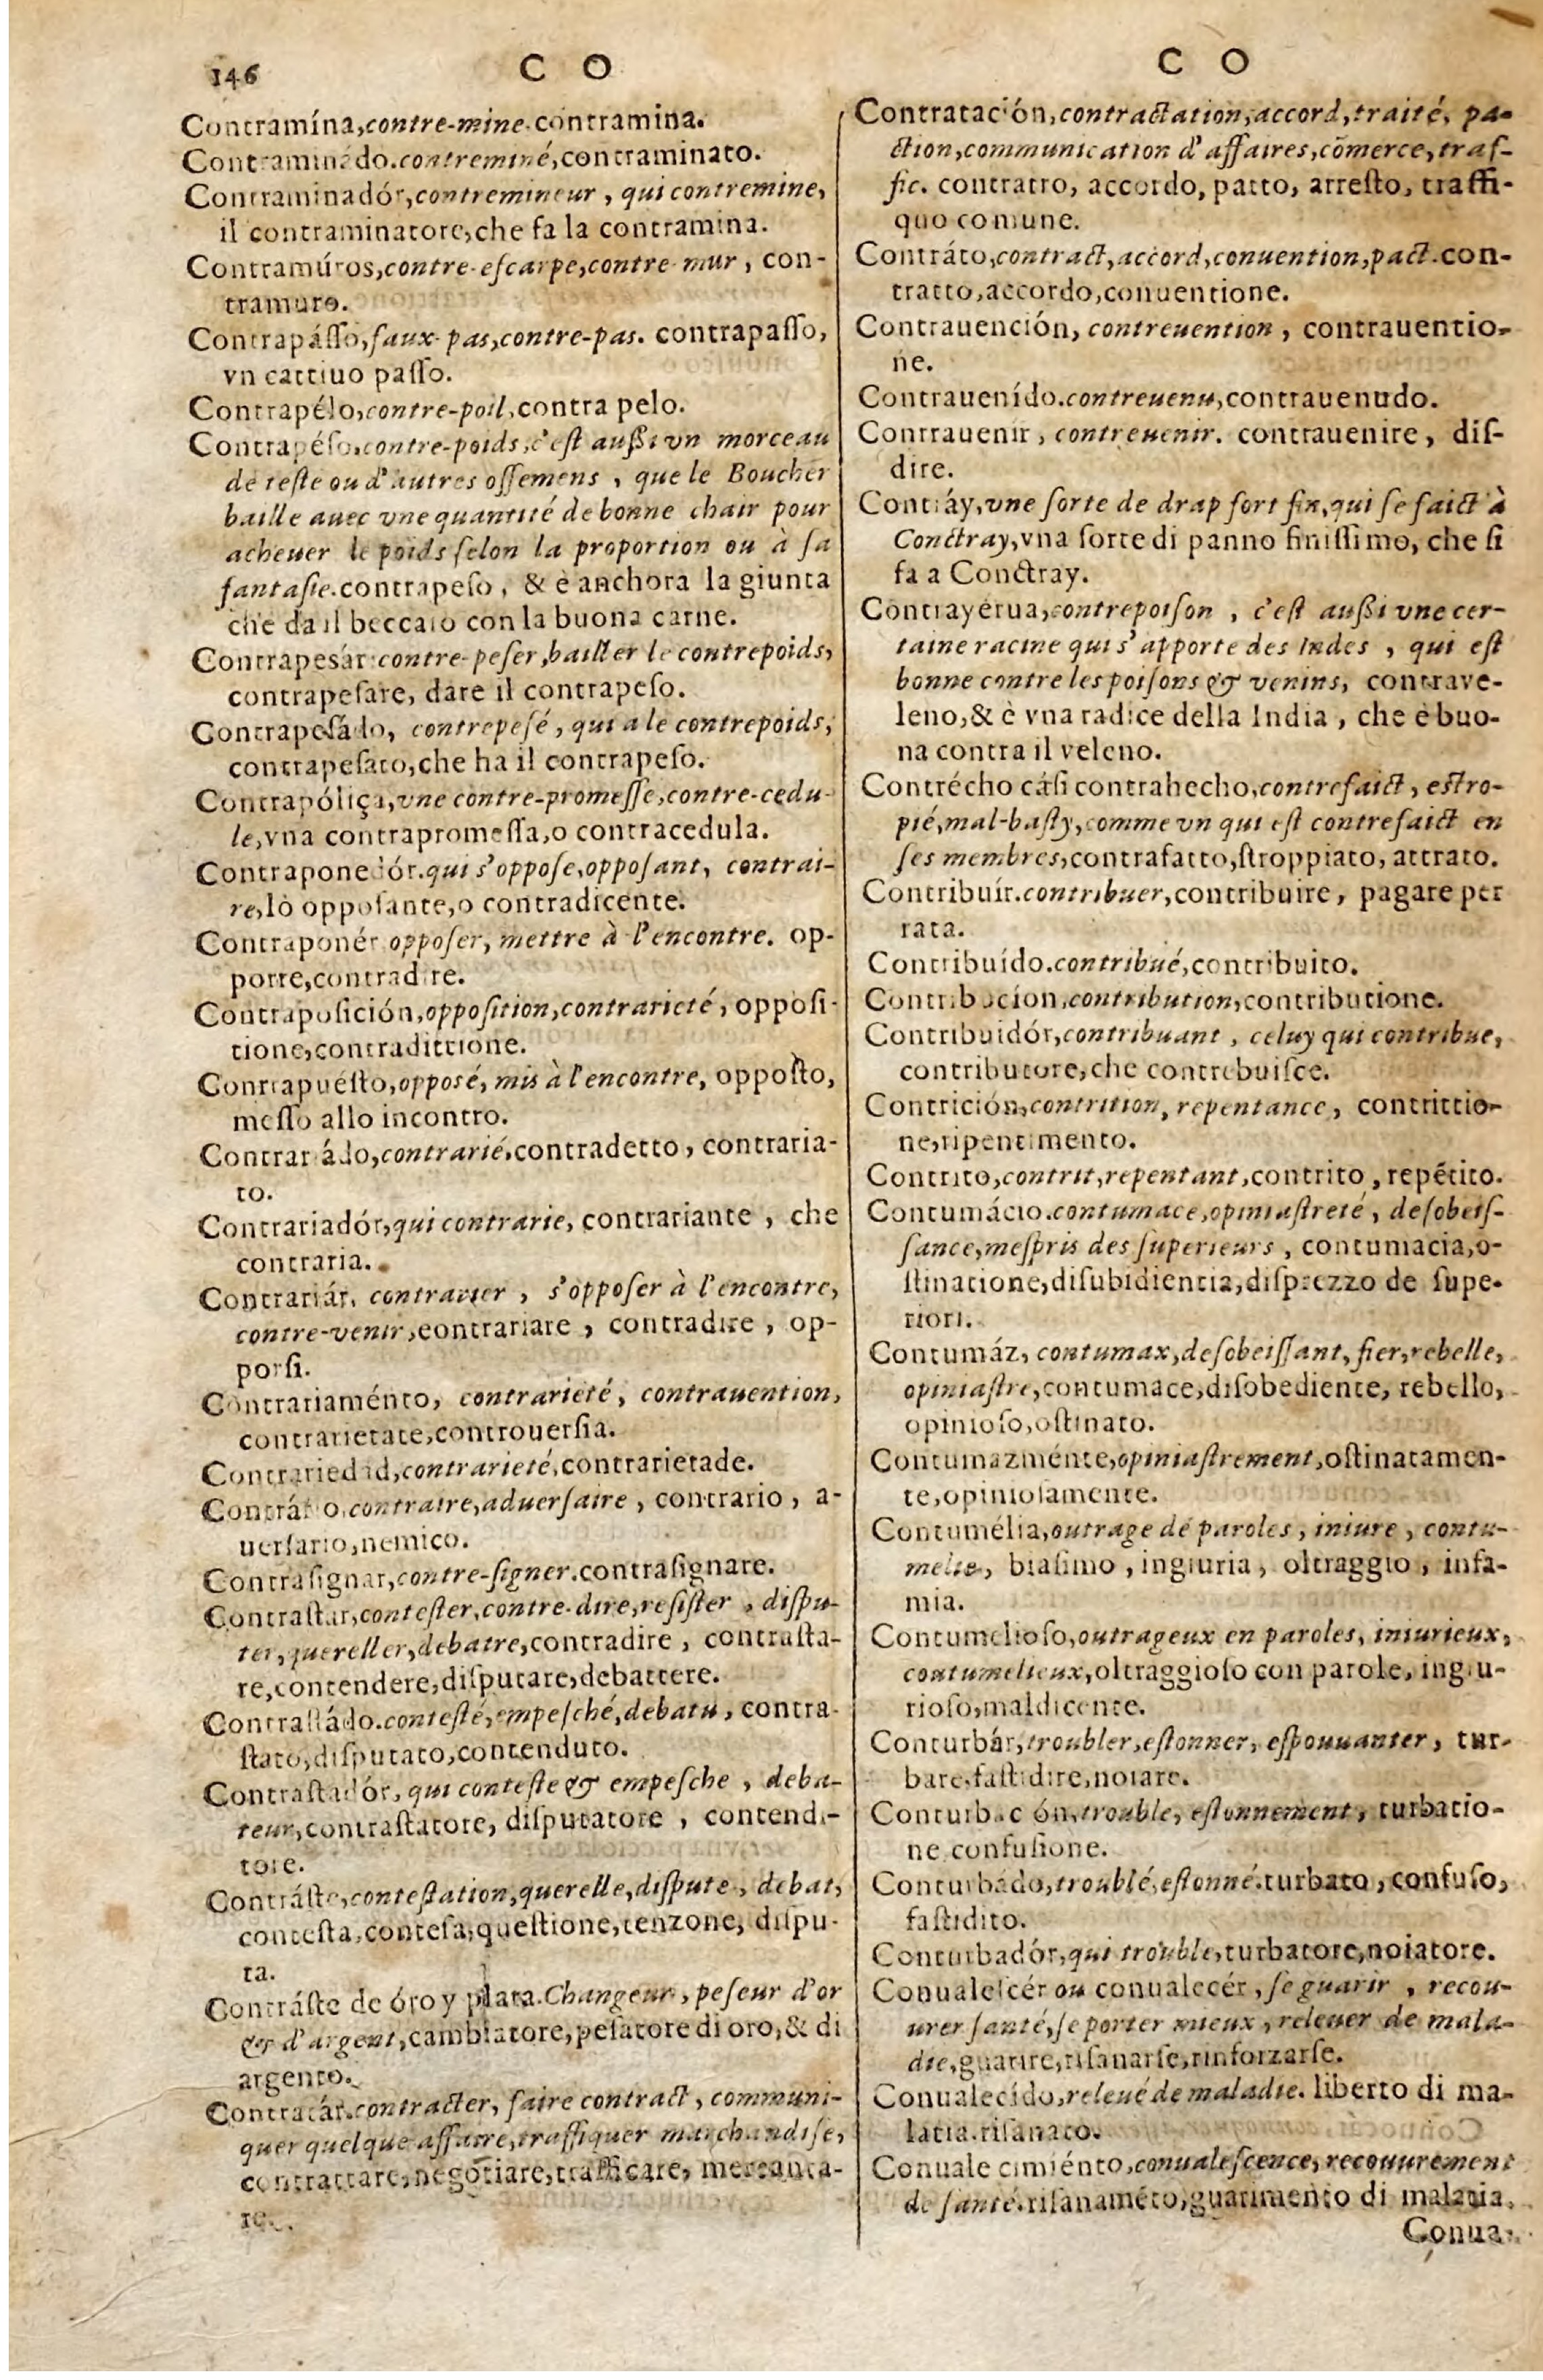 146
C O
Contramína,contre-mine.contramina.
Contraminádo.contreminé,contraminato.
Contraminadór,contremineur , qui contremine,
il contraminatore,che fa la contramina.
Contramúros,contre-eſcarpe,contre-mur , con-
tramuro.
Contrapáſſo,faux-pas,contre-pas. contrapaſſo,
vn cattiuo paſſo.
Contrapélo,contre-poil,contra pelo.
Contrapéſo,contre-poids,c'eſt auſſi vn morceau
de teſte ou d'autres oſſemens , que le Boucher
baille auec vne quantité de bonne chair pour
acheuer le poids ſelon la proportion ou à ſa
fantaſie.contrapeſo, & è anchora la giunta
che da il beccaio con la buona carne.
Contrapesár contre-peſer,bailler le contrepoids,
contrapeſare, dare il contrapeſo.
Contrapeſádo, contrepeſé , qui a le contrepoids,
contrapeſato,che ha il contrapeſo.
Contrapóliça,vne contre-promeſſe,contre-cedu-
le,vna contrapromeſſa,o contracedula.
Contraponedór.qui s'oppoſe,oppoſant, contrai-
re,lo oppoſante,o contradicente.
Contraponér oppoſer, mettre à l'encontre. op-
porre,contradire.
Contrapoſición,oppoſition,contrarieté, oppoſi-
tione,contradittione.
Contrapuéſto,opposé, mis à l'encontre, oppoſto,
meſſo allo incontro.
Contrariádo,contrarié.contradetto, contraria-
to.
Contrariadór,qui contrarie, contrariante , che
contraria.
Contrariár, contrarier , s'oppoſer à l'encontre,
contre-venir,eontrariare , contradire , op-
porſi.
Contrariaménto, contrarieté, contrauention,
contrarietate,controuerſia.
Contrariedad,contrarieté,contrarietade.
Contrário.contraire,aduerſaire , contrario , a-
uerſario,nemico.
Contraſignar,contre-ſigner.contraſignare.
Contraſtar,conteſter,contre-dire,reſiſter , diſpu-
ter,quereller,debatre,contradire , contraſta-
re,contendere,diſputare,debattere.
Contraſtádo.conteſté,empeſché,debatu, contra-
ſtato,diſputato,contenduto.
Contraſtadór, qui conteſte & empeſche , deba-
teur,contraſtatore, diſputatore , contendi-
tore.
Contráſte,conteſtation,querelle,diſpute, debat,
conteſta,conteſa,queſtione,tenzone, diſpu-
ta.
Contráſte de óro y plata.Changeur, peſeur d'or
& d'argent,cambiatore,peſatore di oro,& di
argento.
Contratár.contracter, faire contract, communi-
quer quelque affaire,traffiquer marchandiſe,
contrattare,negotiare,trafficare, mercanta-
re.
C O
Contratación,contractation,accord,traité, pa-
ction,communication d'affaires,cōmerce,traf-
fic. contratro, accordo, patto, arreſto, traffi-
quo comune.
Contráto,contract,accord,conuention,pact.con-
tratto,accordo,conuentione.
Contrauención, contreuention , contrauentio-
ne.
Contrauenído.contreuenu,contrauenudo.
Contrauenir, contreuenir. contrauenire, diſ-
dire.
Contráy,vne ſorte de drap fort fin,qui ſe faict à
Conctray,vna ſorte di panno finiſſimo, che ſi
fa a Conctray.
Contrayerua,contrepoiſon , c'eſt auſſi vne cer-
taine racine qui s'apporte des Indes , qui eſt
bonne contre les poiſons & venins, contrave-
leno,& è vna radice della India , che è buo-
na contra il veleno.
Contrécho cáſi contrahecho,contrefaict, eſtro-
pié,mal-baſty,comme vn qui eſt contrefaict en
ſes membres,contrafatto,ſtroppiato, attrato.
Contribuír.contribuer,contribuire, pagare per
rata.
Contribuído.contribué,contribuito.
Contribucíon,contribution,contributione.
Contribuidór,contribuant , celuy qui contribue,
contributore,che contrebuiſce.
Contrición,contrition, repentance, contrittio-
ne,ripentimento.
Contrito,contrit,repentant,contrito , repētito.
Contumácio.contumace,opiniaſtreté , deſobeiſ-
ſance,meſpris des ſuperieurs , contumacia,o-
ſtinatione,diſubidientia,diſprezzo de ſupe-
riori.
Contumáz, contumax,deſobeiſſant, fier,rebelle,
opiniaſtre,contumace,diſobediente, rebello,
opinioſo,oſtinato.
Contumazménte,opiniaſtrement,oſtinatamen-
te,opinioſamente.
Contumélia,outrage de paroles, iniure, contu-
melie, biaſimo , ingiuria, oltraggio , infa-
mia.
Contumelioſo,outrageux en paroles, iniurieux,
contumelieux,oltraggioſo con parole, ingiu-
rioſo,maldicente.
Conturbár,troubler,eſtonner, eſpouuanter, tur-
bare,faſtidire,noiare.
Conturbación,trouble, eſtonnement, turbatio-
ne confuſione.
Conturbádo,troublé,eſtonné.turbato, confuſo,
faſtidito.
Conturbadór,qui trouble,turbatore,noiatore.
Conualeſcér ou conualecér, ſe guarir , recou-
urer ſanté,ſe porter mieux , releuer de mala-
die,guarire,riſanarſe,rinforzarſe.
Conualecído,releué de maladie. liberto di ma-
latia.riſanato.
Conualecimiénto,conualeſcence, recouurement
de ſanté.riſanaméto,guarimento di malatia.
Conua-